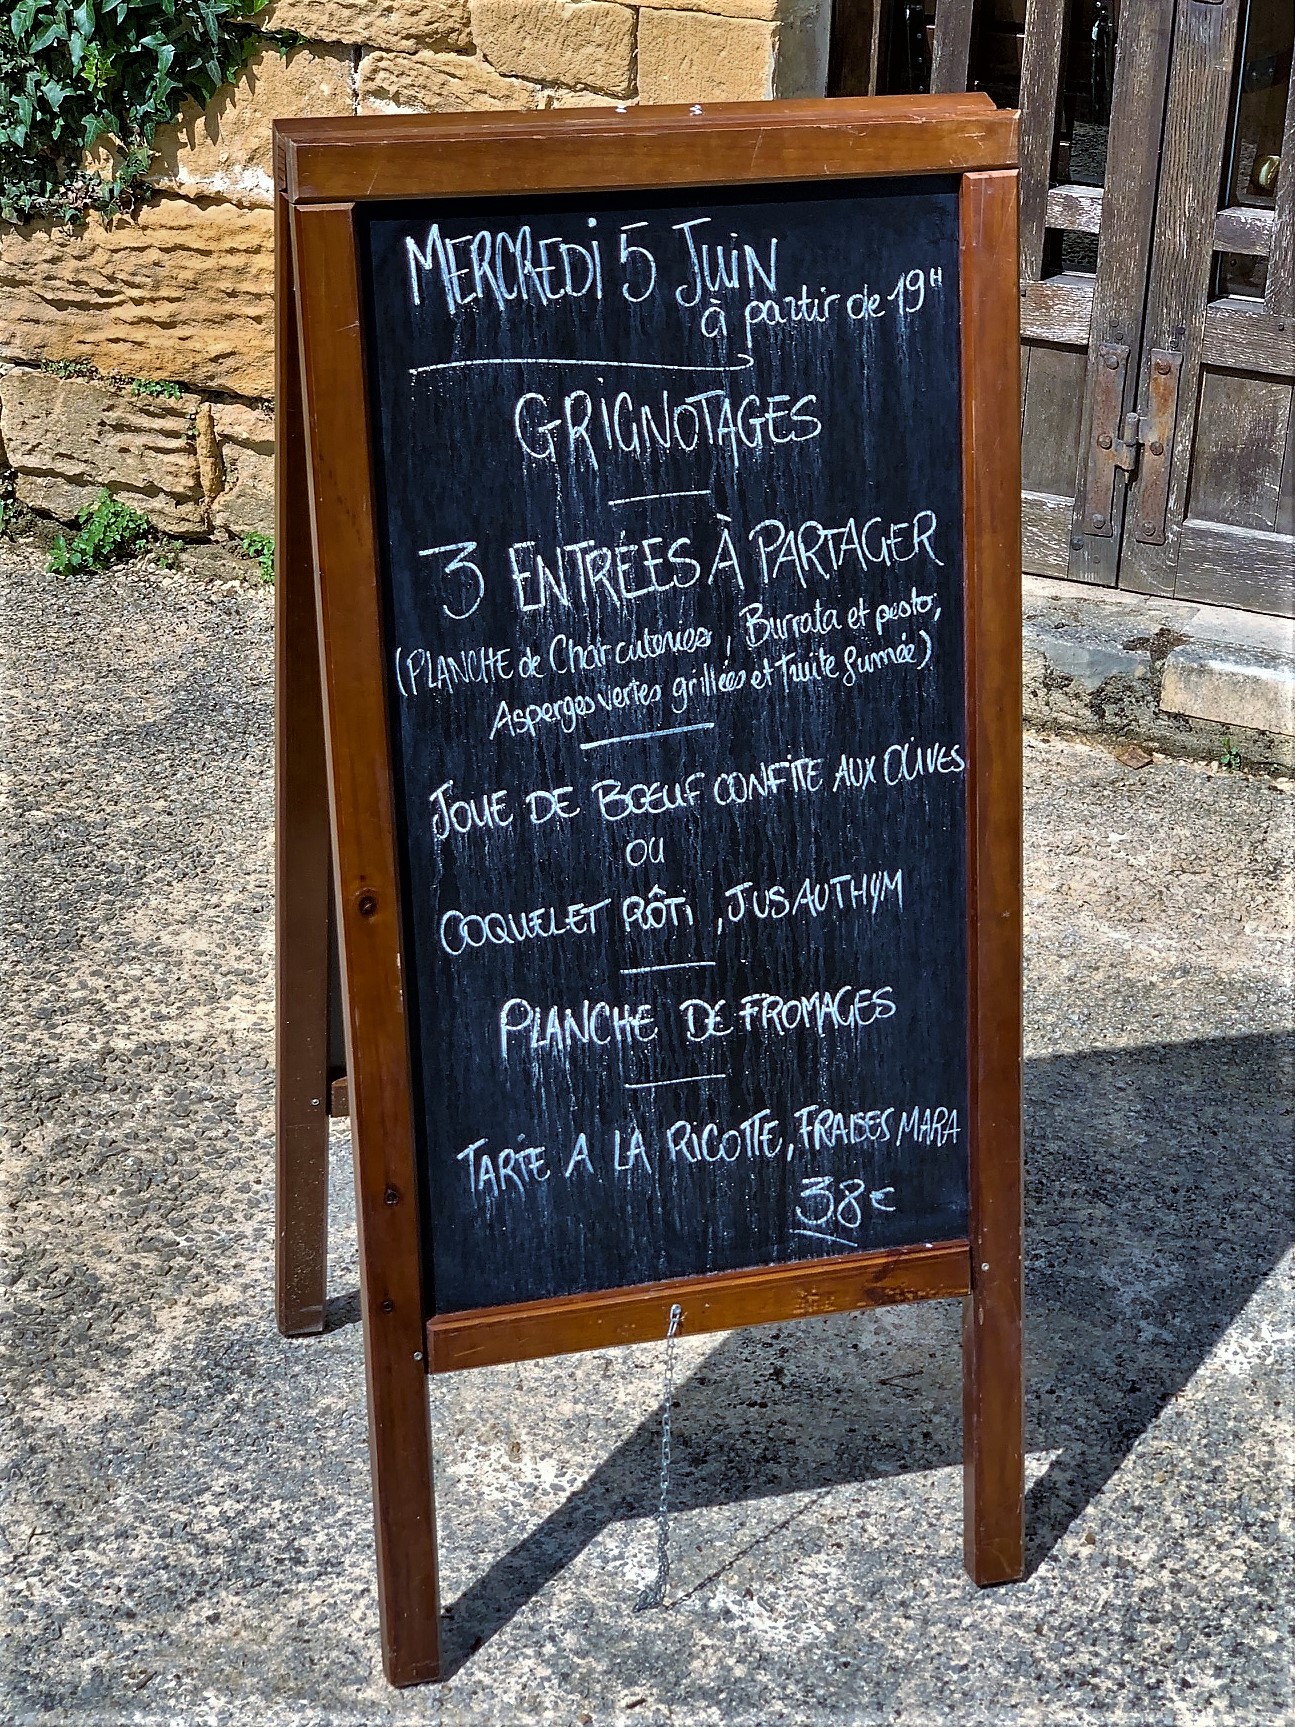 MERCREDI 5 JUIN
à partir de 19H
GRIGNOTAGES
3 ENTRÉES À PARTAGER
(PLANCHE de Charcuteries, Burrata et pesto,
Asperges vertes grillées et Truite fumée)
JOUE DE BŒUF CONFITE AUX OLIVES
OU
COQUELET RÔTI, JUS AU THYM
PLANCHE DE FROMAGES
TARTE A LA RICOTTE, FRAISES MARA
38€